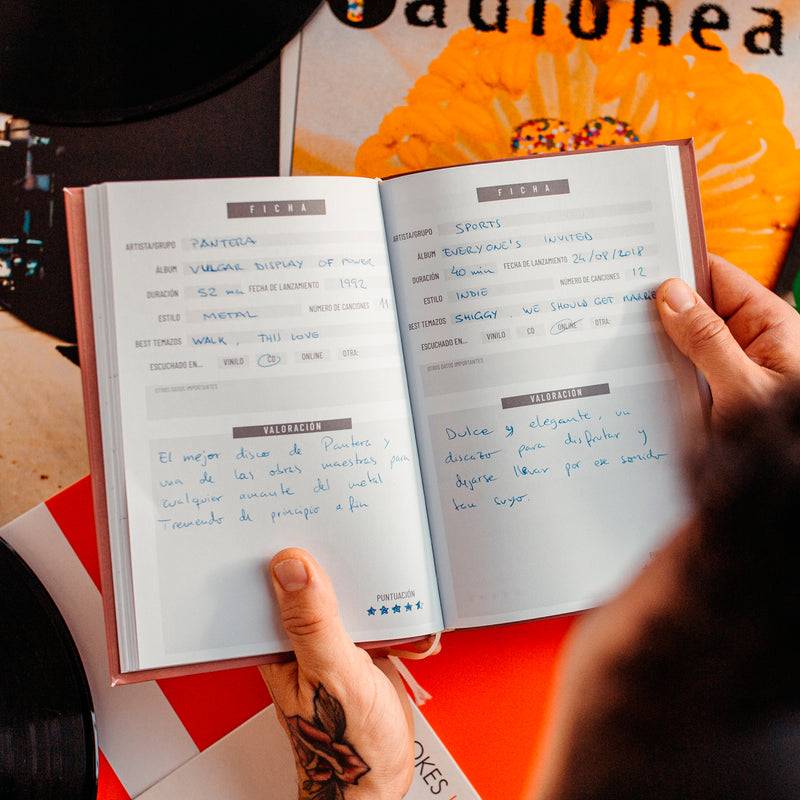 Radiohea
FICHA
ARTISTA/GRUPO PANTERA
ÁLBUM VULGAR DISPLAY OF POWER
DURACIÓN 52 min FECHA DE LANZAMIENTO 1992
ESTILO METAL NÚMERO DE CANCIONES 11
BEST TEMAZOS WALK, THIS LOVE
ESCUCHADO EN... VINILO CD ONLINE OTRA:
OTROS DATOS IMPORTANTES
VALORACIÓN
El mejor disco de Pantera y
una de las obras maestras para
cualquier amante del metal
Tremendo de principio a fin
PUNTUACIÓN
FICHA
ARTISTA/GRUPO SPORTS
ÁLBUM EVERYONE'S INVITED
DURACIÓN 40 min FECHA DE LANZAMIENTO 24/08/2018
ESTILO INDIE NÚMERO DE CANCIONES 12
BEST TEMAZOS SHIGGY, WE SHOULD GET MARRIE
ESCUCHADO EN... VINILO CD ONLINE OTRA:
OTROS DATOS IMPORTANTES
VALORACIÓN
Dulce y elegante, un
discazo para disfrutar y
dejarse llevar por ese sonido
tan suyo.
OKES